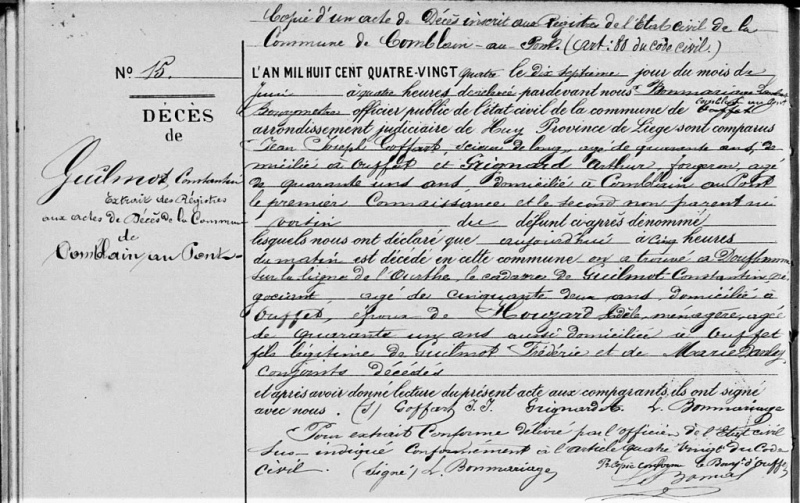 Copie d'un acte de Décès inscrit aux Registres de l'Etat civil de la
Commune de Comblain-au-Pont. (art: 80 du code civil.)
No 15.
DÉCÈS
de
Guilmot, Constantin
Extrait des Registres
aux actes de Décès de la Commune
de
Comblain au Pont
L'AN MIL HUIT CENT QUATRE-VINGT quatre le dix septième jour du mois de
Juin à quatre heures de relevée pardevant nous Bonmariage
Bourgmestre officier public de l'état civil de la commune de Ouffet
Comblain au Pont
arrondissement judiciaire de Huy Province de Liege sont comparus
Jean Joseph Goffart, scieur de long, agé de quarante ans, do
micilié à Ouffet et Grignard Arthur, forgeron, agé
de quarante uns ans, domicilié à Comblain au Pont
le premier Connaissance et le second non parent ni
voisin du défunt ci-après dénommé
lesquels nous ont déclaré que aujourd'hui à cinq heures
du matin est décédé en cette commune on a trouvé a Douxflamme
sur la ligne de l'Ourthe, le cadavre de Guilmot Constantin, né
gociant agé de cinquante deux ans, domicilié à
Ouffet, époux de Houzard Adèle, ménagère, agée
de quarante un ans aussi domiciliée à Ouffet
fils légitime de Guilmot Frédéric et de Marie
conjoints décédés
et après avoir donné lecture du présent acte aux comparants, ils ont signé
avec nous. (S) Goffart J. J. Grignard A. L. Bonmariage
Pour extrait Conforme délivré par l'officier de l'Etat civil
sus-indiqué Conformément à l'article quatre vingt du Code
civil. (signé) L. Bonmariage
Copie conforme le Bourg. d'Ouffet